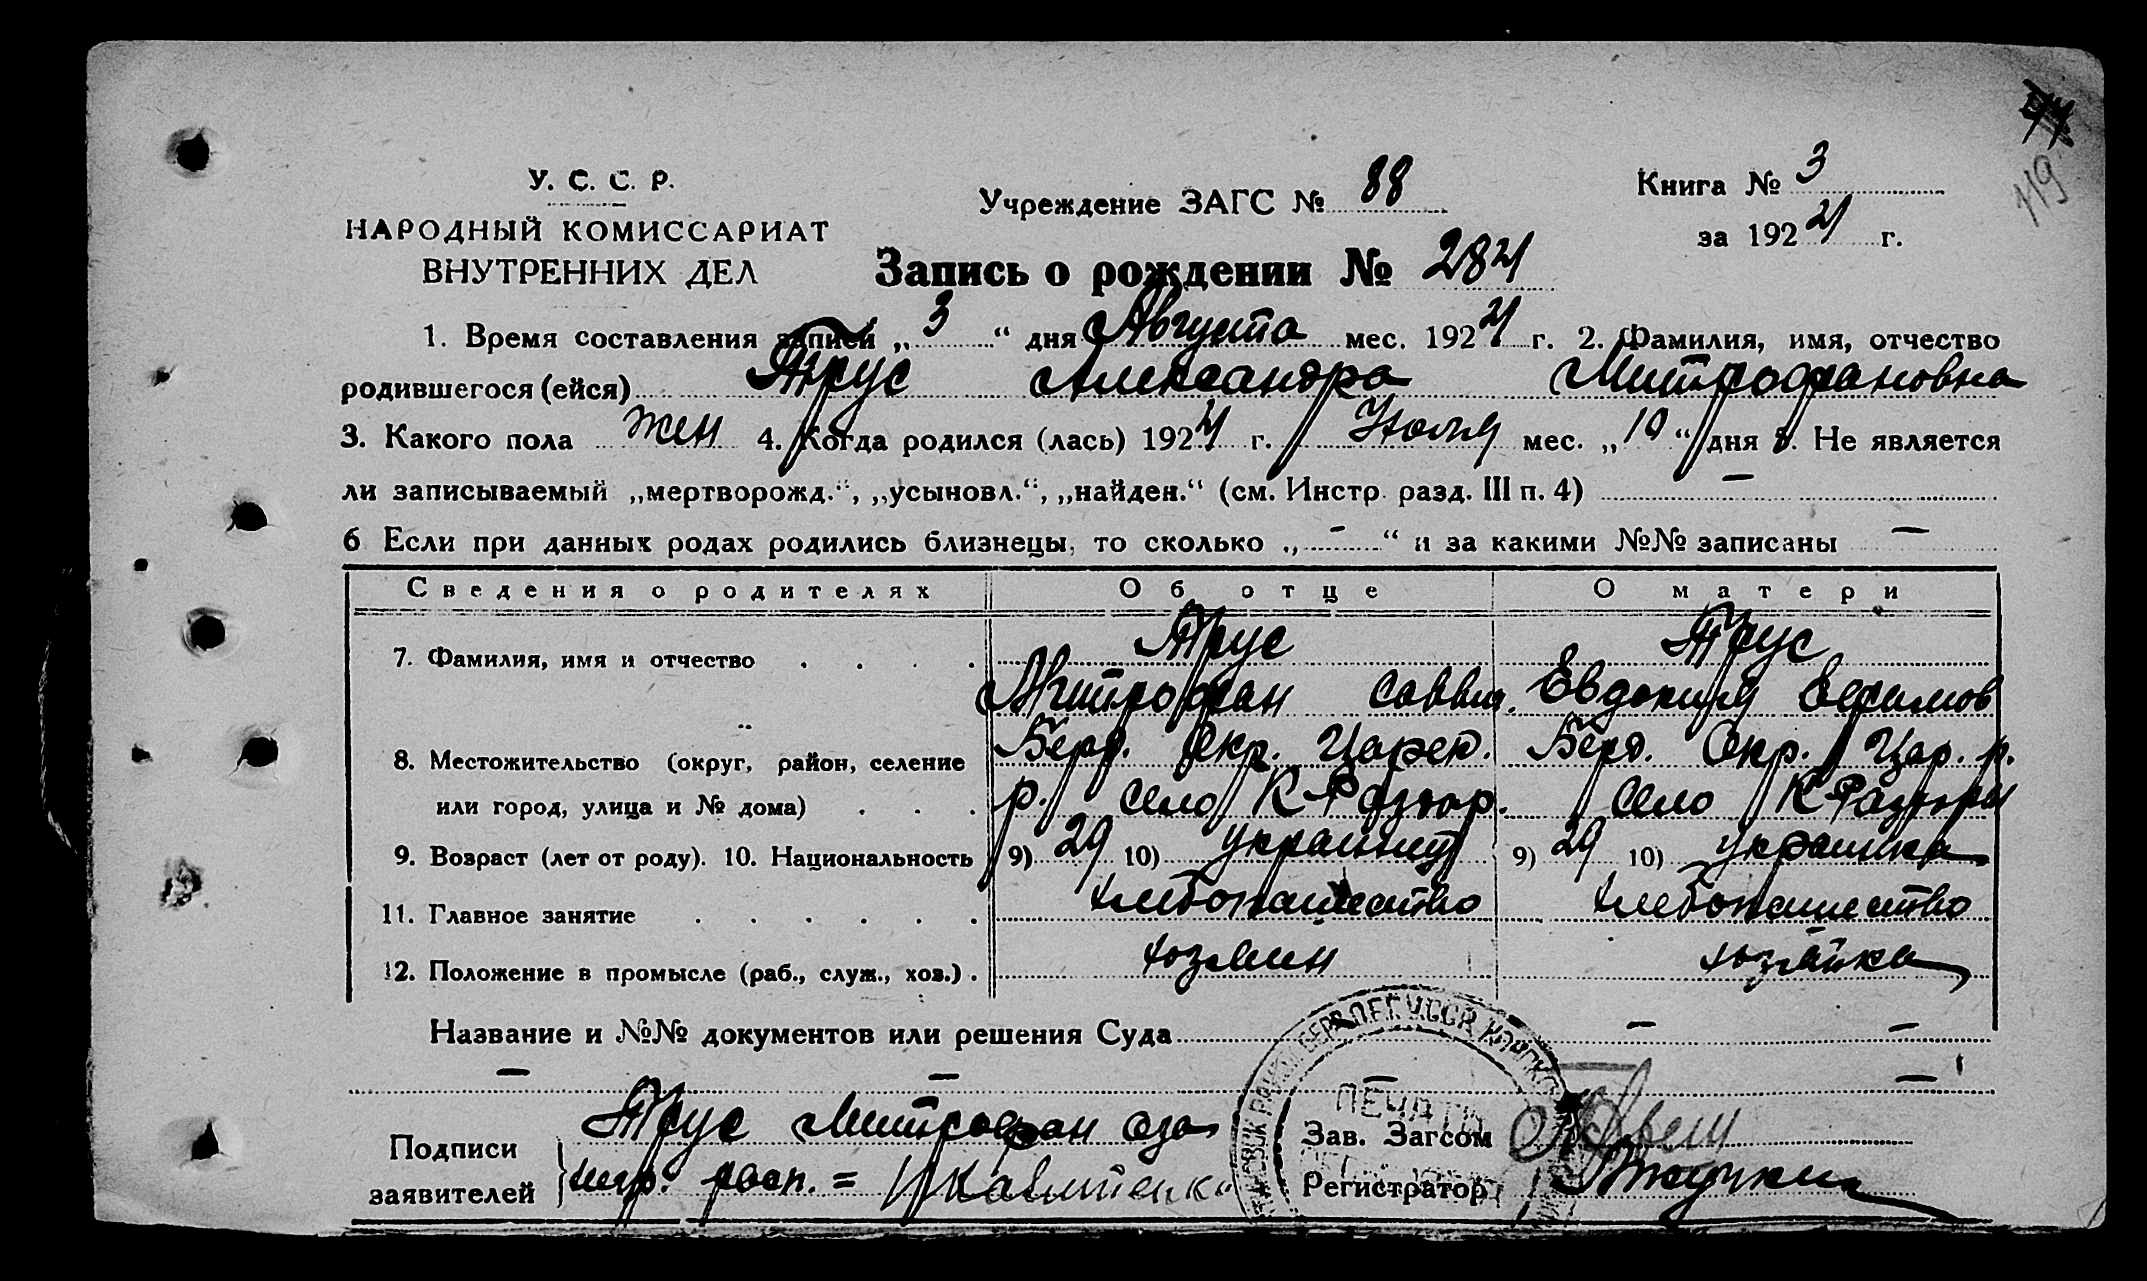 119
У. С. С. Р.
НАРОДНЫЙ КОМИССАРИАТ
ВНУТРЕННИХ ДЕЛ
Учреждение ЗАГС № 88
Книга № 3
за 1924 г.
Запись о рождении № 284
1. Время составления записи „ 3 “ дня Августа мес. 1924 г. 2. Фамилия, имя, отчество
родившегося (ейся) Трус Александра Митрофановна
3. Какого пола жен 4. Когда родился (лась) 1924 г. Июля мес. „ 10 “ дня 5. Не является
ли записываемый „мертворожд.“, „усыновл.“, „найден.“ (см. Инстр. разд. III п. 4) —
6 Если при данных родах родились близнецы, то сколько „ - “ и за какими №№ записаны —
Сведения о родителях Об отце О матери
7. Фамилия, имя и отчество . . . . Трус Трус
Митрофан Савви. Евдокия Ефимов
8. Местожительство (округ, район, селение Берд. Окр. Царек. Берд. Окр. Цар. р.
или город, улица и № дома) . . . р. село К-Раздор. село К-Раздоры
9. Возраст (лет от роду). 10. Национальность 9) 29 10) украинец 9) 29 10) украинка
11. Главное занятие . . . . . . хлебопашество хлебопашество
12. Положение в промысле (раб., служ., хоз.) . хозяин хозяйка
Название и №№ документов или решения Суда — —
— — — —
Подписи
заявителей
Трус Митрофан а за
негр. расп. =
ПЕЧАТЬ
Зав. Загсом
Регистратор